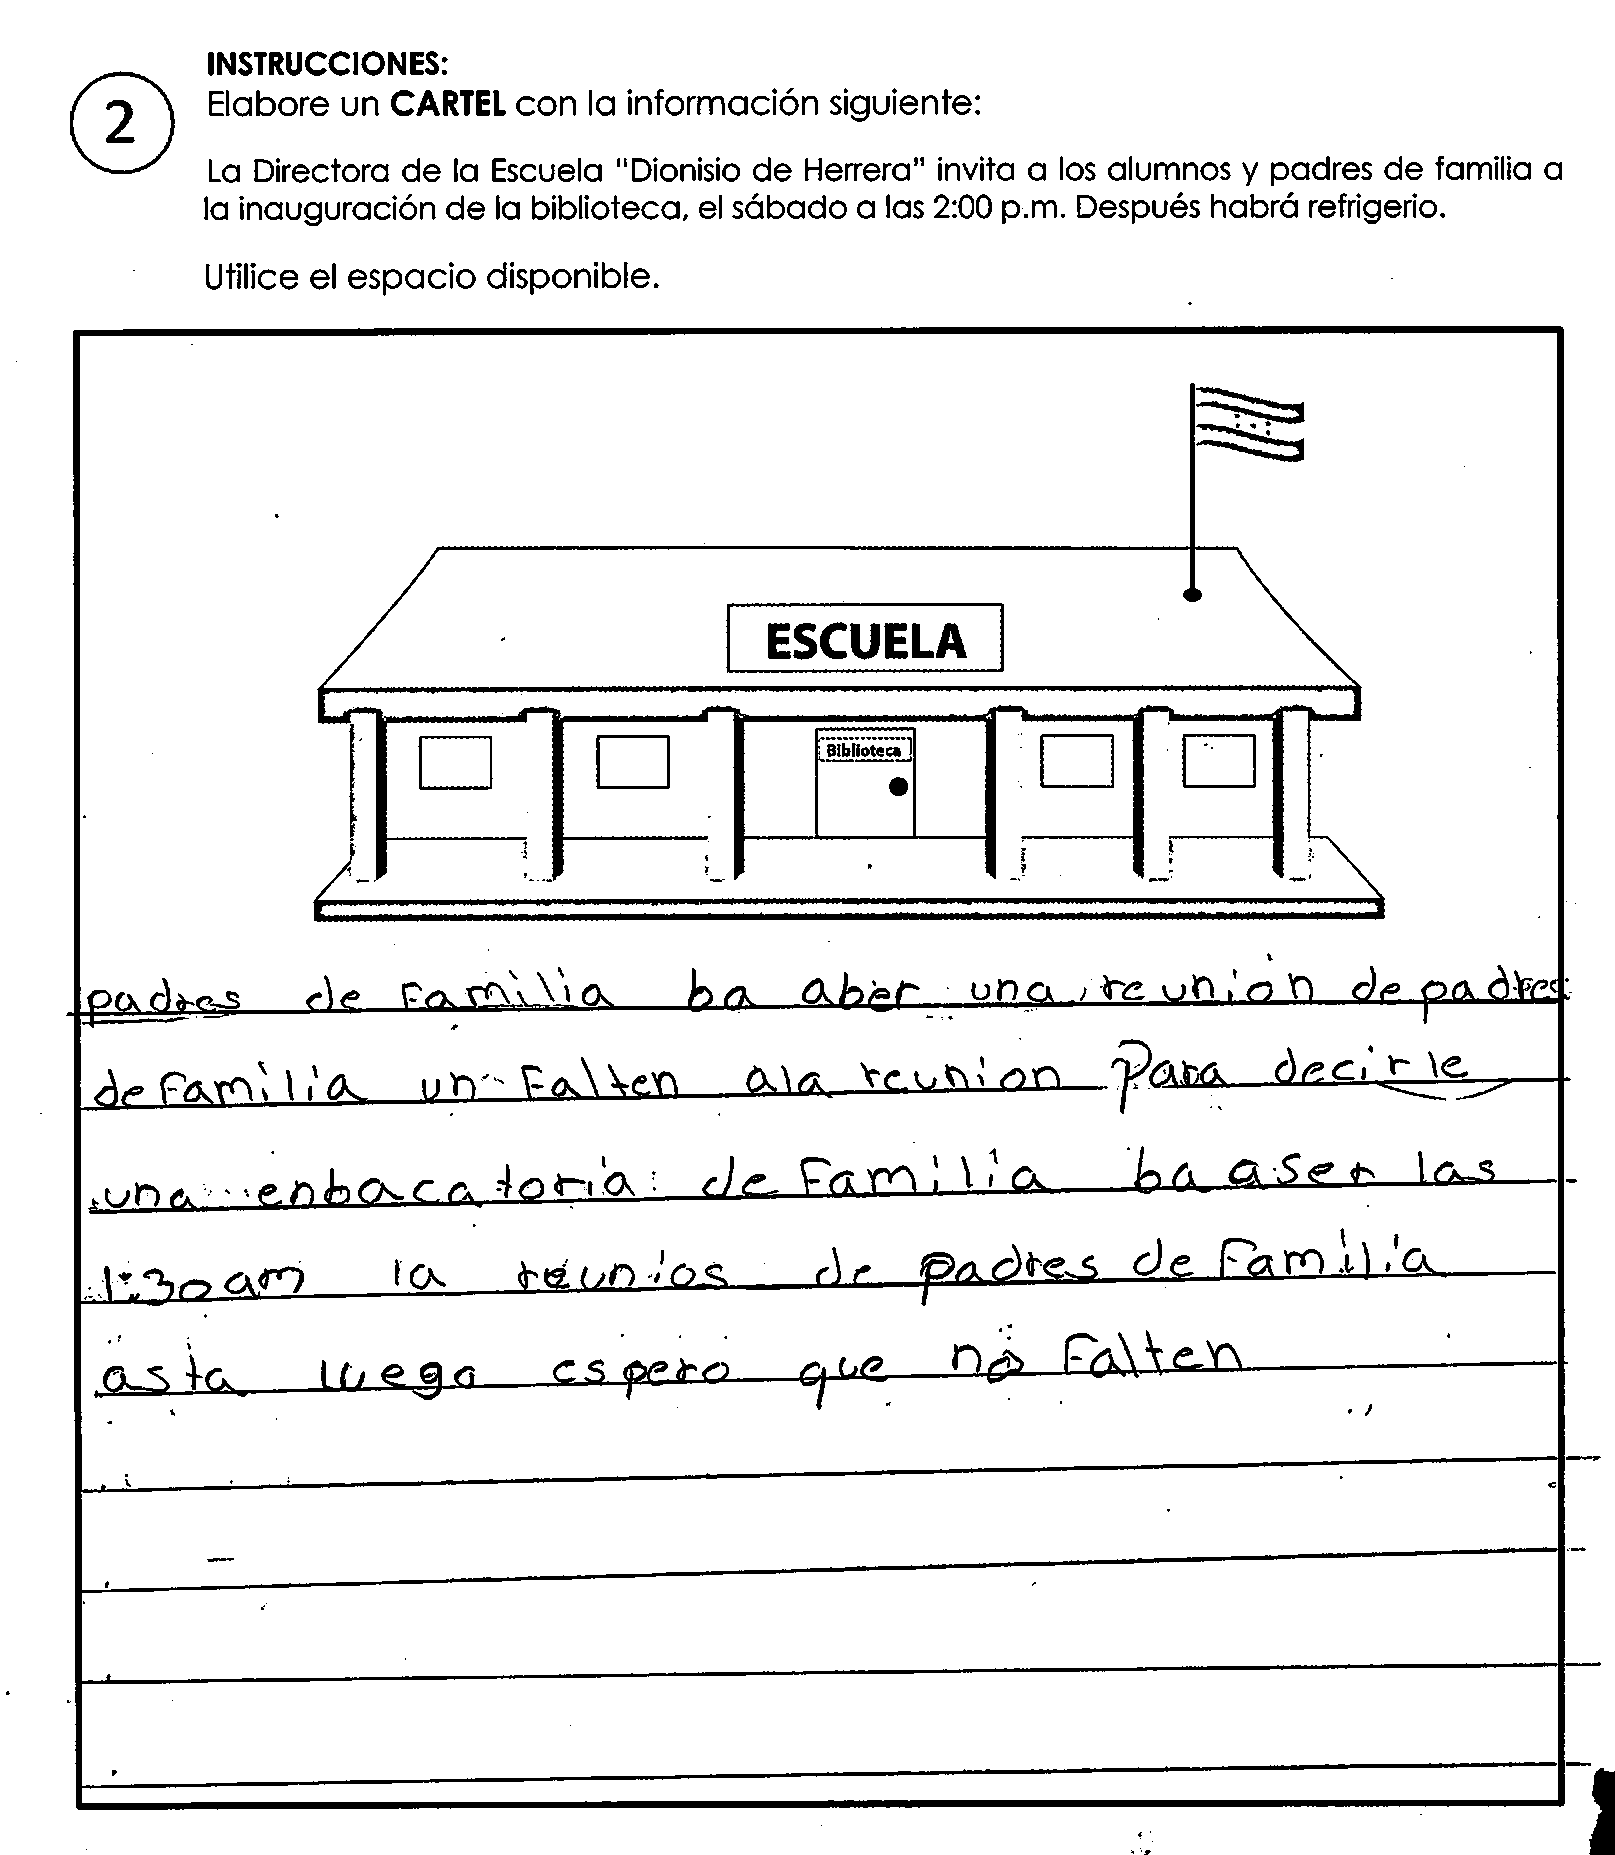 INSTRUCCIONES:
2
Elabore un CARTEL con la información siguiente:
La Directora de la Escuela "Dionisio de Herrera" invita a los alumnos y padres de familia a
la inauguración de la biblioteca, el sábado a las 2:00 p.m. Después habrá refrigerio.
Utilice el espacio disponible.
ESCUELA
Biblioteca
padres de Familia ba aber una reunión de padres
de Familia un Falten ala reunion Para decirle
una enbacatoria de Familia ba aser las
1:30 am la reunios de padres de Familia
asta luego espero que no Falten